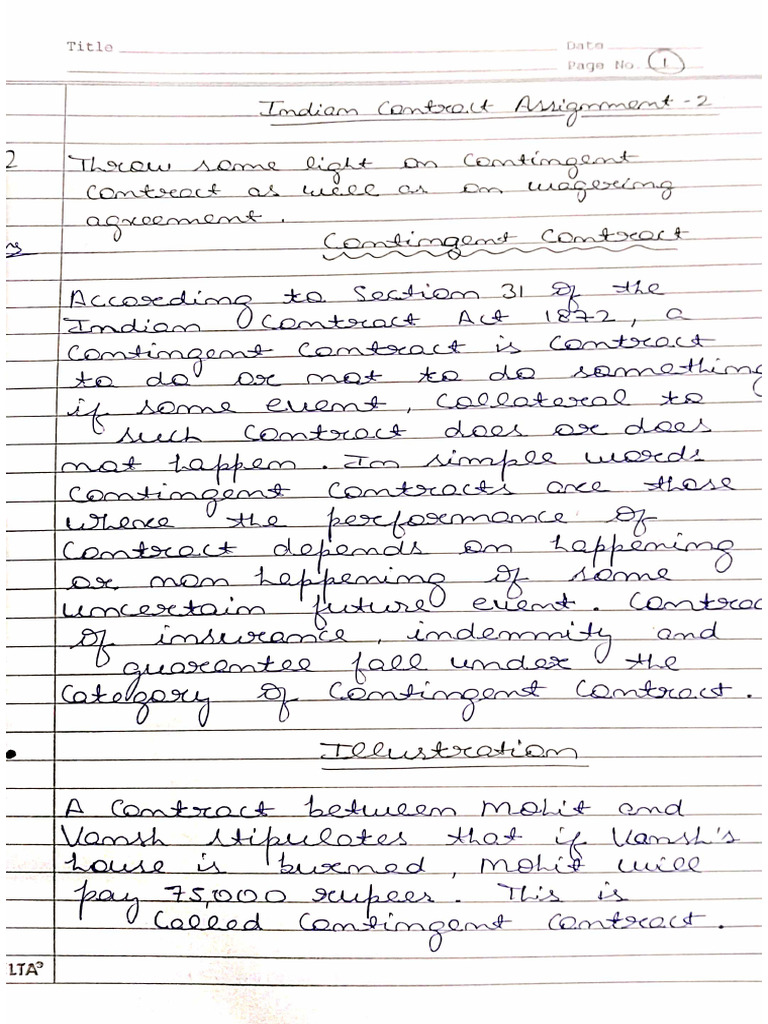 Title
Date
Page No. 1
Indian Contract Assignment-2
2 Throw some light on contingent
contract as well as on wagering
agreement.
Contingent Contract
According to Section 31 of the
Indian Contract Act 1872, a
contingent contract is contract
to do or not to do something
if some event, collateral to
such contract does or does
not happen. In simple words
contingent contracts are those
where the performance of
contract depends on happening
or non happening of some
uncertain future event. Contrac
of insurance, indemnity and
guarentee fall under the
category of contingent contract.
• Illustration
A contract between Mohit and
Vansh stipulates that if Vansh's
house is burned, Mohit will
pay 75,000 rupees. This is
called contingent contract.
LTA